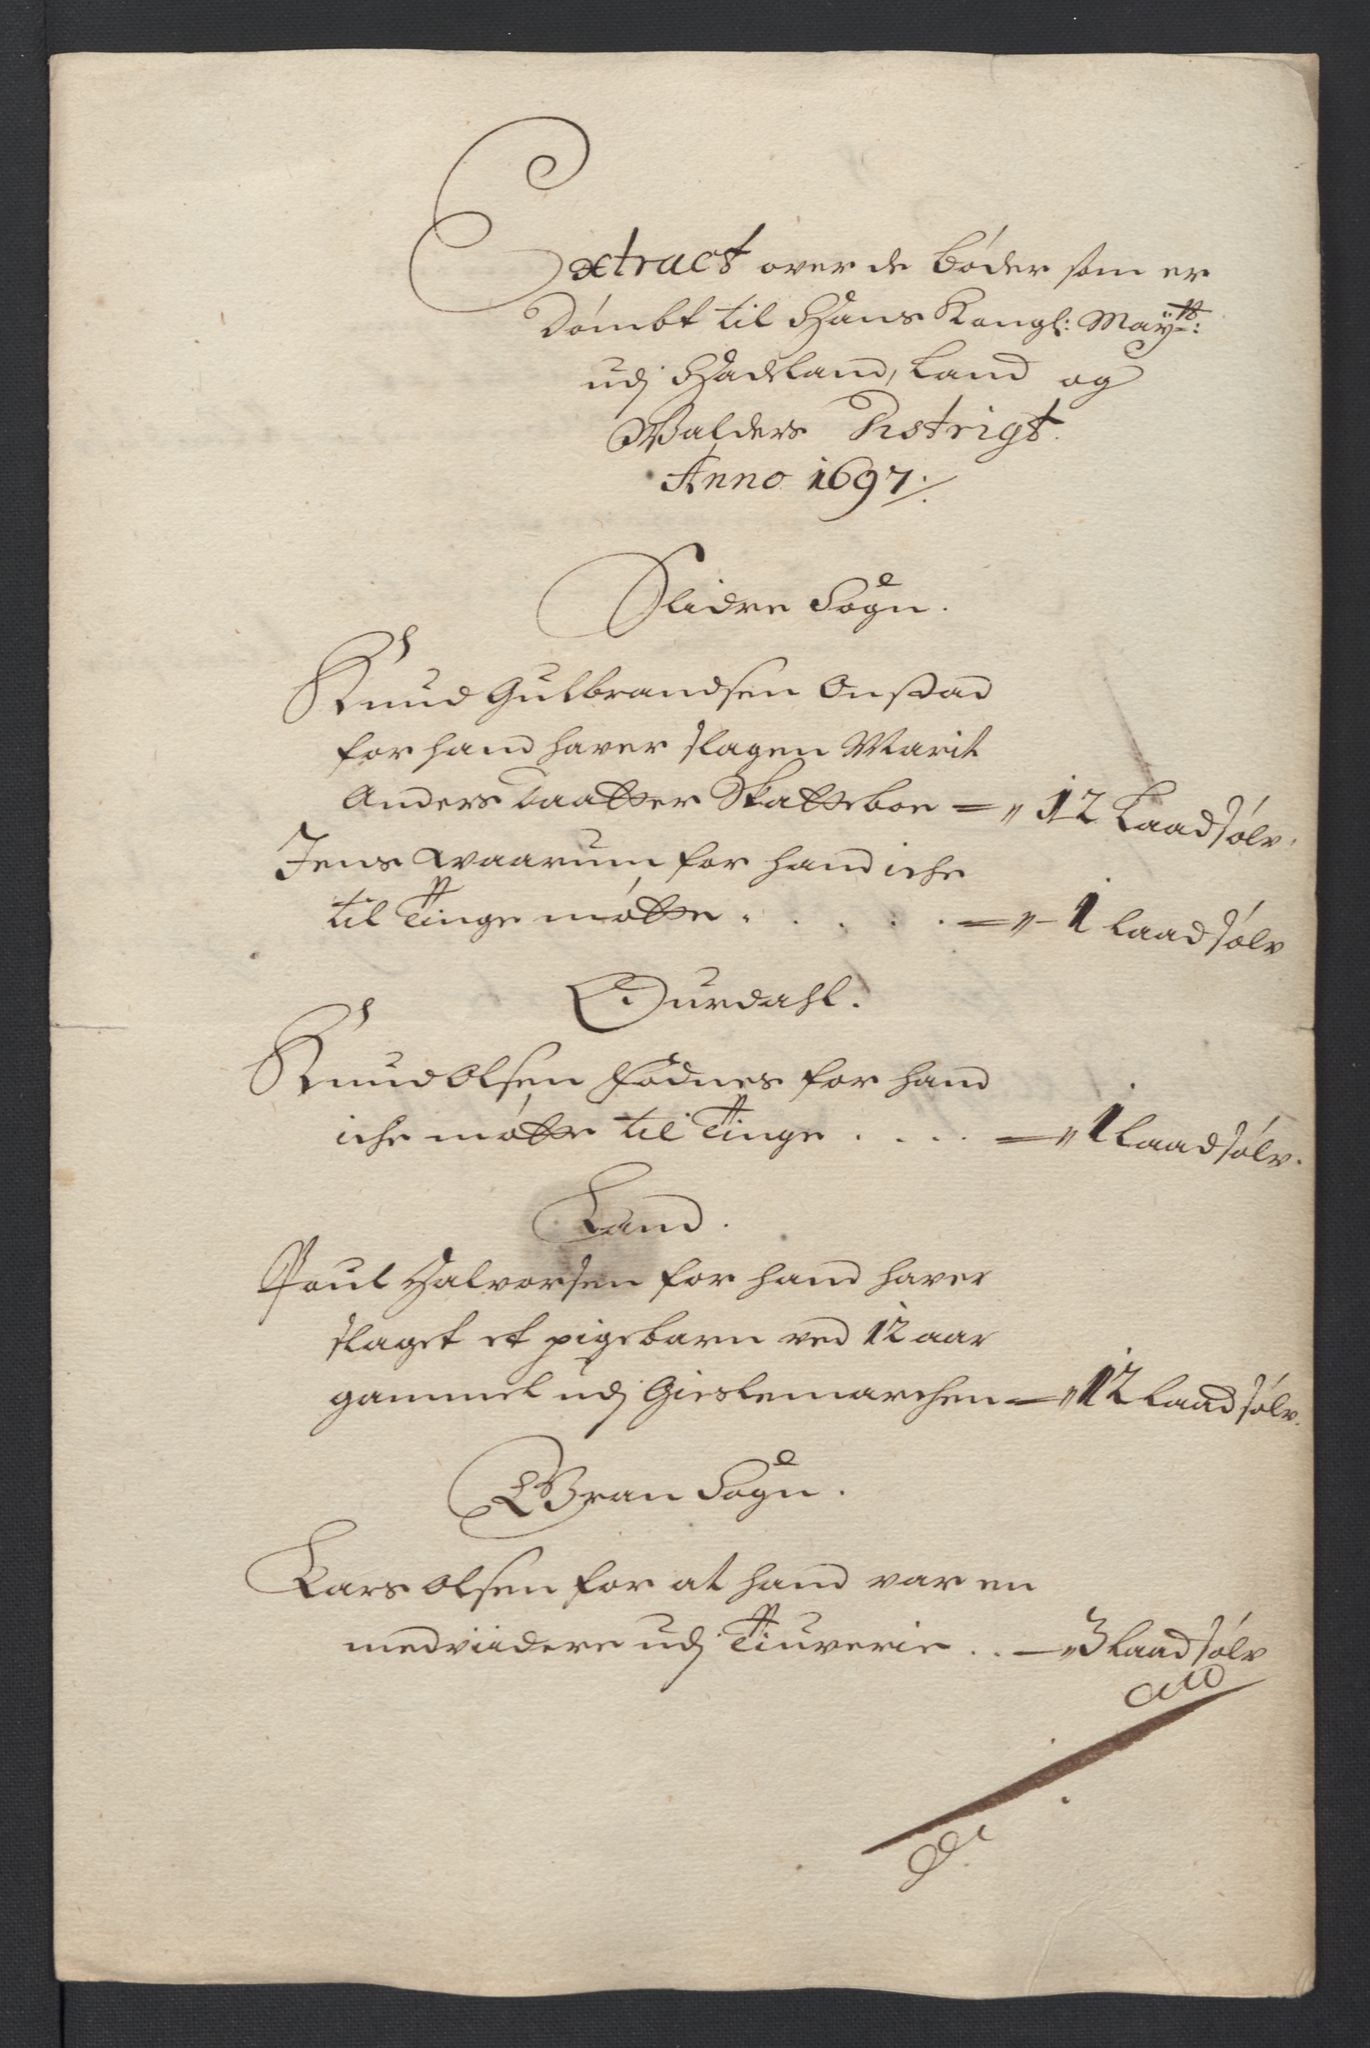 Extract over de bøder som er
Dømbt til Hans Kongl: Maÿtz:
udj Hadeland, Land og
Walders Distrigt.
Anno 1697:/
Slidre Sogn.
Knud Gulbrandsen Onstad
for hand haver slagen Marit
Anders Daatter Skatteboe = „ 12 Laad sølv.
Jens Qvaarum for hand iche
til Tinge møtte . . . . . = „ – 1 laad sølv
Ourdahl.
Knud Olsen Fødnes for hand
iche møtte til Tinge . . . . = „ 1 laad sølv.
Land.
Poul Halvorsen for hand haver
slaget et pigebarn ved 12 aar
gammel udj Gieslemarchen = „ 12 laad sølv.
Gran Sogn.
Lars Olsen for at hand var en
medviidere udj Tiuverie . . – „ 3 laad sølv